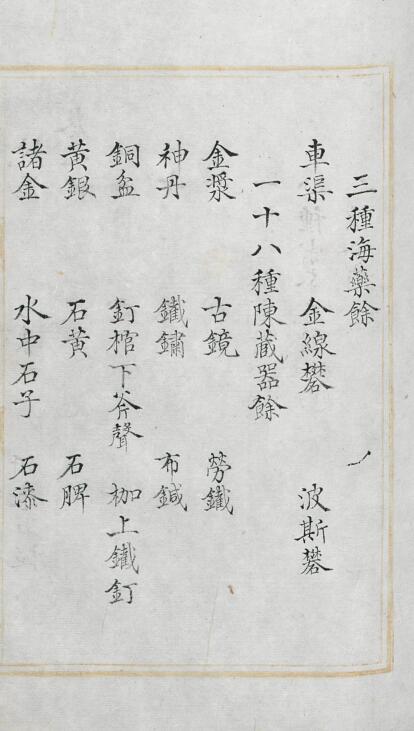 三種海藥餘
車渠　金線礬　波斯礬
一十八種陳藏器餘
金漿　古鏡　勞鐵
神丹　鐵鏽　布鍼
銅盆　釘棺下斧聲　枷上鐵釘
黃銀　石黃　石脾
諸金　水中石子　石漆